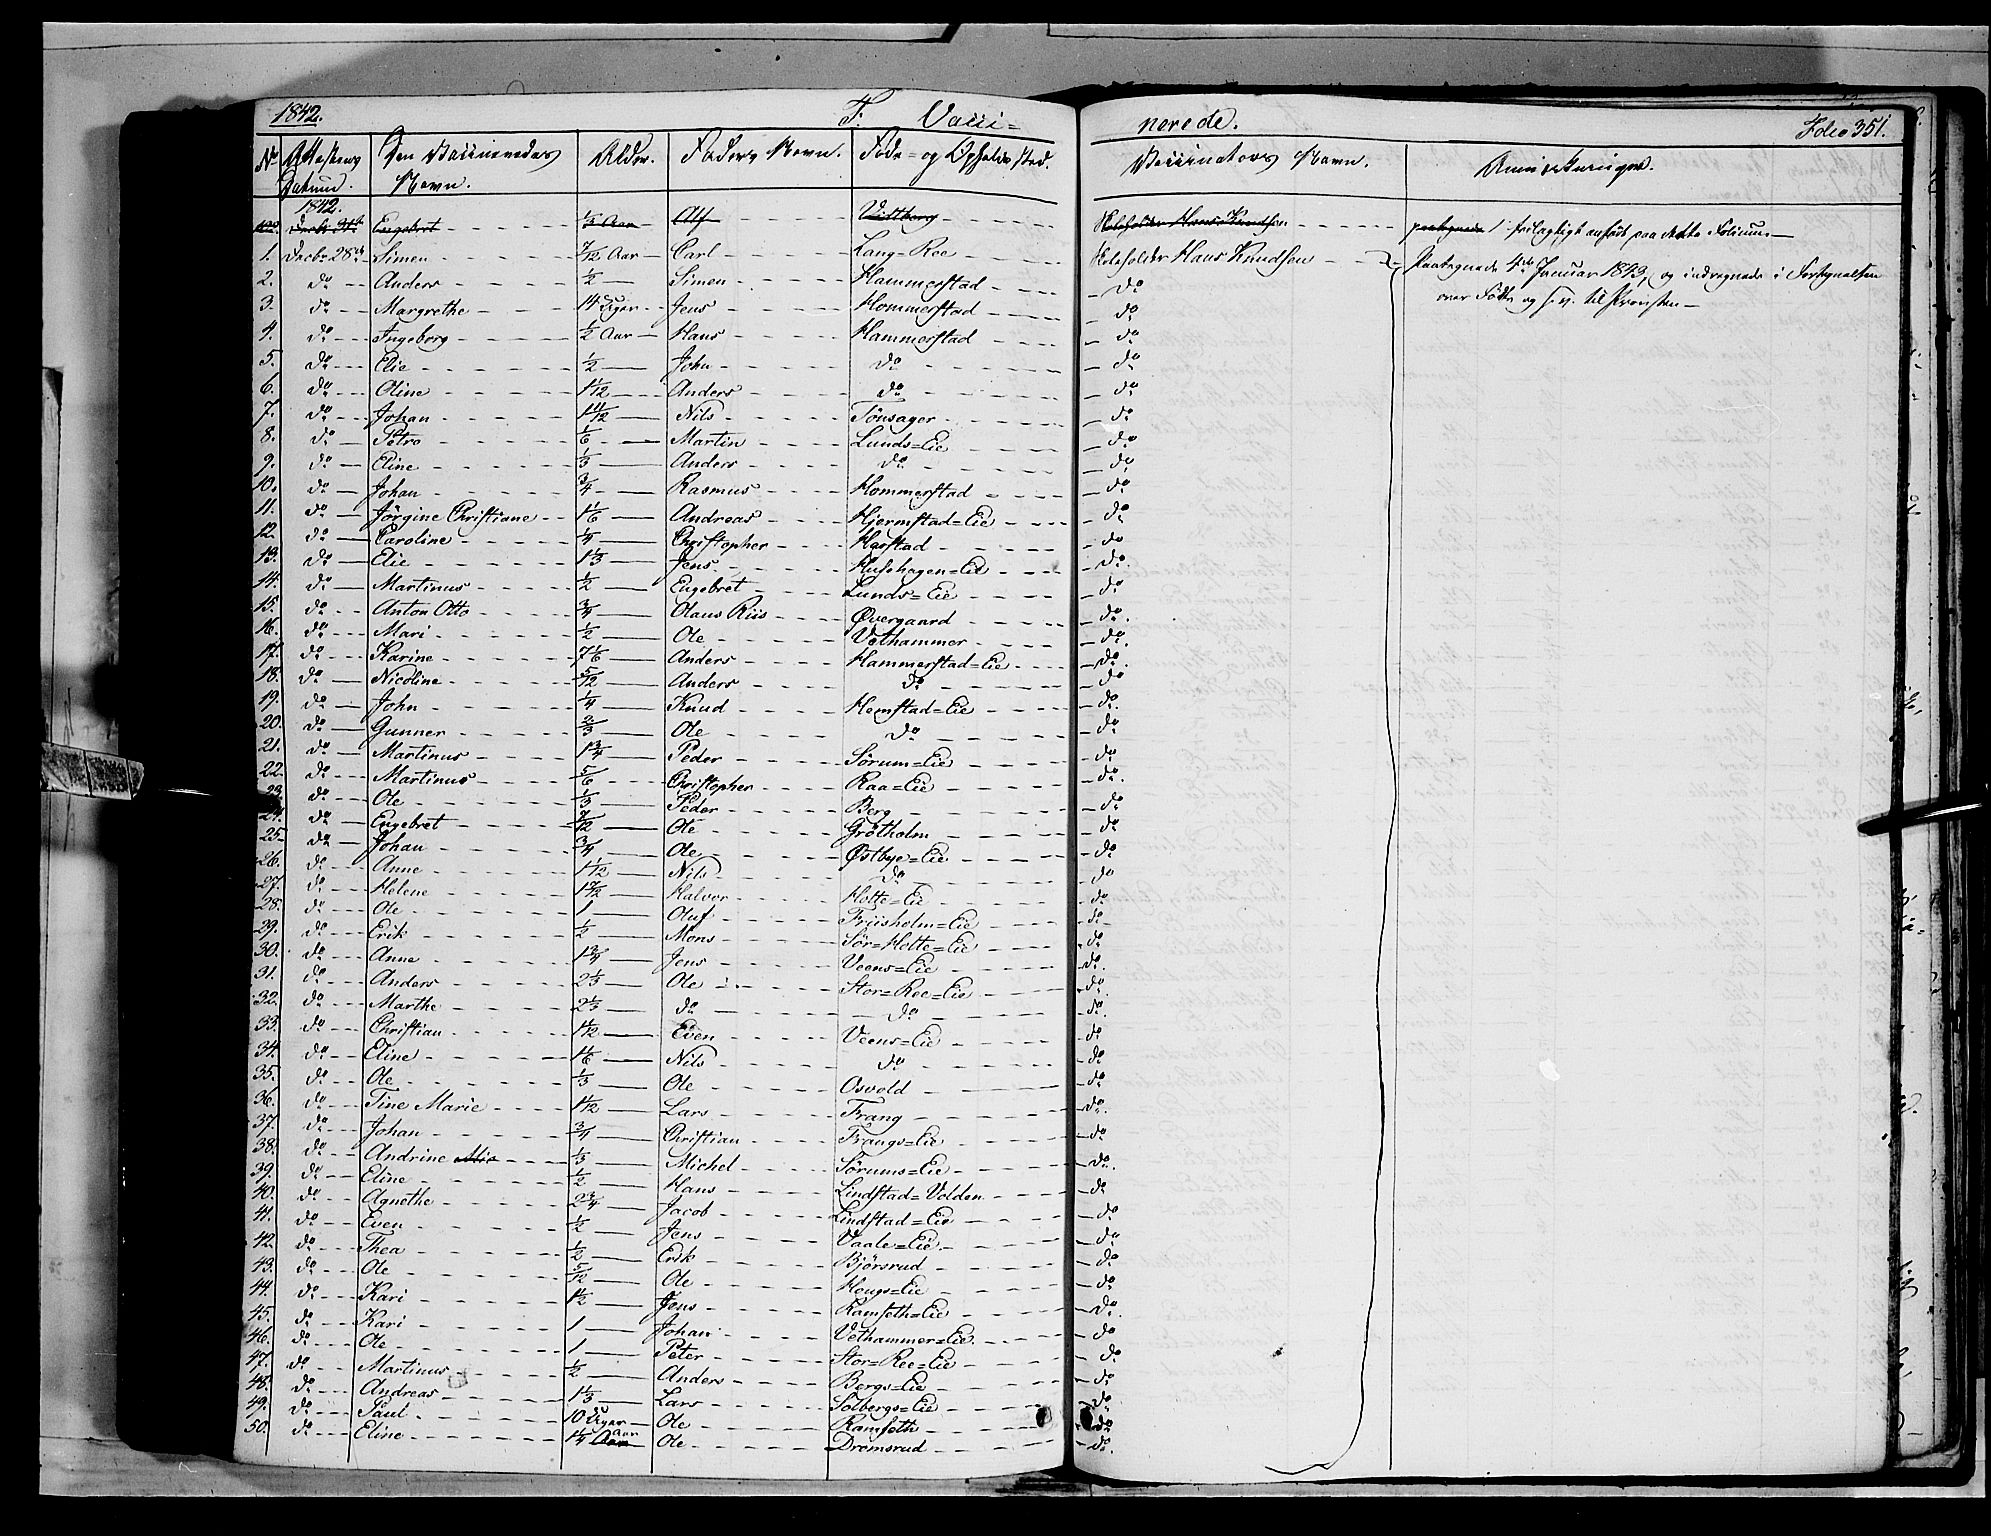 1842. F. Vacci=
nerede. Folio 351.
No Attestens Datum. Den Vaccineredes Navn. Alder. Faders Navn. Føde= og Opholds sted. Vaccinators Navn. Anmærkninger.
1842.
Engebret 1/3 Aar Alf Vestberg Hans Knudsen feilagtigt anført paa dette Folium.
1. Decbr 28de Simen 7/12 Aar Carl Lang=Ree Hans Knudsen Paategnede 4de Januar 1843, og indtegnede i Fortegnelsen
2. do Anders 1/2 Simen Hammerstad do over Fødte og til Provsten
3. do Margrethe 14 Uger Jens Hommerstad do
4. do Ingeborg 1/2 Aar Hans Hammerstad do
5. do Elie 1/2 John do do
6. do Oline 1 1/12 Anders do do
7. do Johan 1 11/12 Nils Tønsager do
8. do Petro 1/6 Martin Lunds=Eie do
9. do Eline 1/3 Anders do do
10. do Johan 3/4 Rasmus Hommerstad do
11. do Jørgine Christiane 1 1/6 Andreas Hjermstad=Eie do
12. do Caroline 1/4 Christopher Harstad do
13. do Elie 1 1/3 Jens Husehagen=Eie do.
14. do Martinus 1/2 Engebret Lunds=Eie do
15. do Anton Otto 3/4 Olaus Riis Øvergaard do.
16. do Mari 1/2 Ole Vethammer do
17. do Karine 7 1/6 Anders Hammerstad=Eie do.
18. do Nicoline 5/12 Anders do do
19. do John 1/4 Knud Hemstad=Eie do.
20. do Gunner 2/3 Ole do do
21. do Martinus 1 3/4 Peder Sørum=Eie do
22. do Martinus 5/6 Christopher Raa=Eie do.
23. do Ole 1/3 Peder Berg do
24. do Engebret Ole Grøtholm do
25. do Johan 3/4 Ole Østbye=Eie do
26. do Anne 1 1/12 Nils do do
27. do Helene Halvor Hotte=Eie do
28. do Ole 1 Oluf Friisholm=Eie do
29. do Erik 1/2 Mons Sør=Hotte=Eie do
30. do Anne 1 3/4 Jens Veens=Eie do.
31. do Anders 2 1/3 Ole Stor=Ree=Eie do.
32. do Marthe 2 1/3 do do do.
33. do Christian 1 1/12 Even Veens=Eie do
34. do Eline 1 1/6 Nils do do
35. do Ole 1/3 Ole Osvold do
36. do Tine Marie 1 1/12 Lars Frang do.
37. do Johan 3/4 Christian Frangs=Eie do
38. do Andrine 1/3 Michel Sørums=Eie do.
39. do Eline 1/2 Hans Lindstad=Volden do
40. do Agnethe 2 3/4 Jacob Lindstad=Eie do
41. do Even 1/2 Jens Vaale=Eie do
42. do Thea 1/2 Erik Bjørsrud do
43. do Ole 5/12 Ole Hougs=Eie do
44. do Kari 1 1/2 Jens Ramseth=Eie do.
45. do Kari 1 Johan Vethammer=Eie do
46. do Ole 1 Peter Stor=Ree=Eie do
47. do Martinus 1/2 Anders Bergs=Eie do
48. do Andreas 1 1/3 Lars Solbergs=Eie do
49. do Paul 10 Uger Ole Ramseth do
50. do Eline 1 1/4 Aar Ole Dromsrud do.